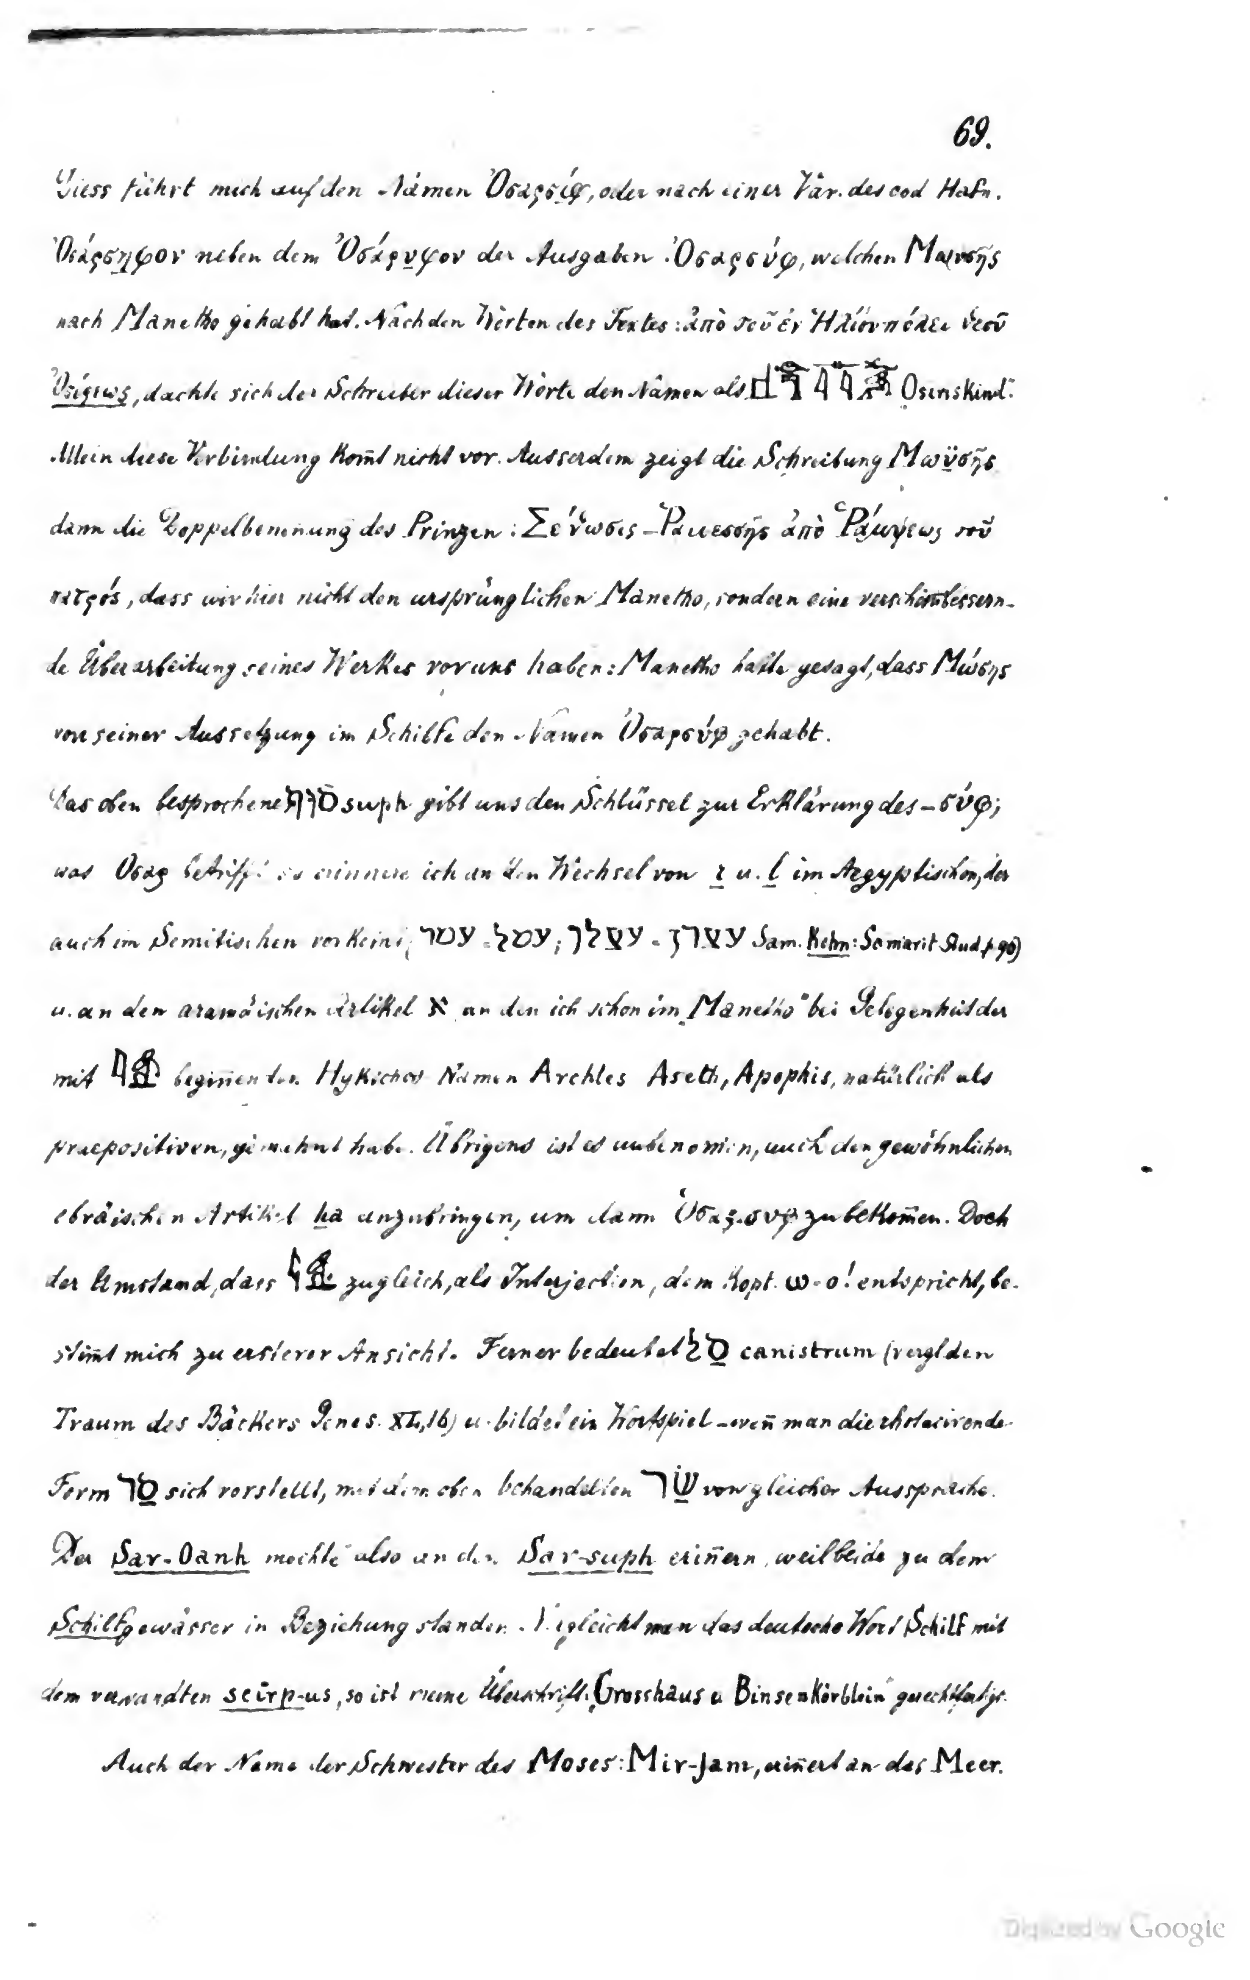 69.
Diess führt mich auf den Namen Ὀσαρσίφ, oder nach einer Var. des cod Hafn.
Ὀσάρσηφον neben dem Ὀσάρυφον der Ausgaben Ὀσαρσύφ, welchen Μωυσῆς
nach Manetho gehabt hat. Nach den Worten des Textes: ἀπὸ τοῦ ἐν Ἡλίουπόλει θεοῦ
Ὀσίρεως, dachte sich der Schreiber dieser Worte den Namen als Osiriskind".
Allein diese Verbindung kom̄t nicht vor. Ausserdem zeigt die Schreibung Μωϋσῆς
dann die Doppelbenen̄ung des Prinzen: Σέθωσις – Ῥαμεσσῆς ἀπὸ Ῥάμψεως τοῦ
πατρός, dass wir hier nicht den ursprünglichen Manetho, sondern eine verschlim̄bessern-
de Überarbeitung seines Werkes vor uns haben: Manetho hatte gesagt, dass Μώσης
von seiner Aussetzung im Schilfe den Namen Ὀσαρσύφ gehabt.
Das oben besprochene סוף suph gibt uns den Schlüssel zur Erklärung des –σύφ;
was Οσαρ betrifft so erinnere ich an den Wechsel von r u. l im Aegyptischen, der
auch im Semitischen vorkom̄t, עמל - עמר; עשלך - עשרך Sam. Kohn: Samarit Stud. p 96)
u. an den aramäischen Artikel א an den ich schon im „Manetho" bei Gelegenheit der
mit begin̄enden Hykschos Namen Archles Aseth, Apophis, natürlich als
praepositiven, gemahnt habe. Übrigens ist es unbenom̄en, auch den gewöhnlichen
ebräischen Artikel ha anzubringen, um dann Ὁσαρ-συφ zu bekom̄en. Doch
der Umstand, dass zugleich, als Interjection, dem Kopt. ω - o! entspricht, be-
stim̄t mich zu ersterer Ansicht. Ferner bedeutet סל canistrum (vergl den
Traum des Bäckers Genes. XL, 16) u. bildet ein Wortspiel – wen̄ man die rhotacirende
Form סר sich vorstellt, mit dem oben behandelten שׂר von gleicher Aussprache.
Der Sar-Oanh mochte also an den Sar-suph erin̄ern, weil beide zu dem
Schilfgewässer in Beziehung standen. Vergleicht man das deutsche Wort Schilf mit
dem verwandten scirp-us, so ist meine Überschrift: „Grosshaus u Binsenkörblein" gerechtfertigt.
Auch der Name der Schwester des Moses: Mir-jam, erin̄ert an das Meer.
Digitized by Google